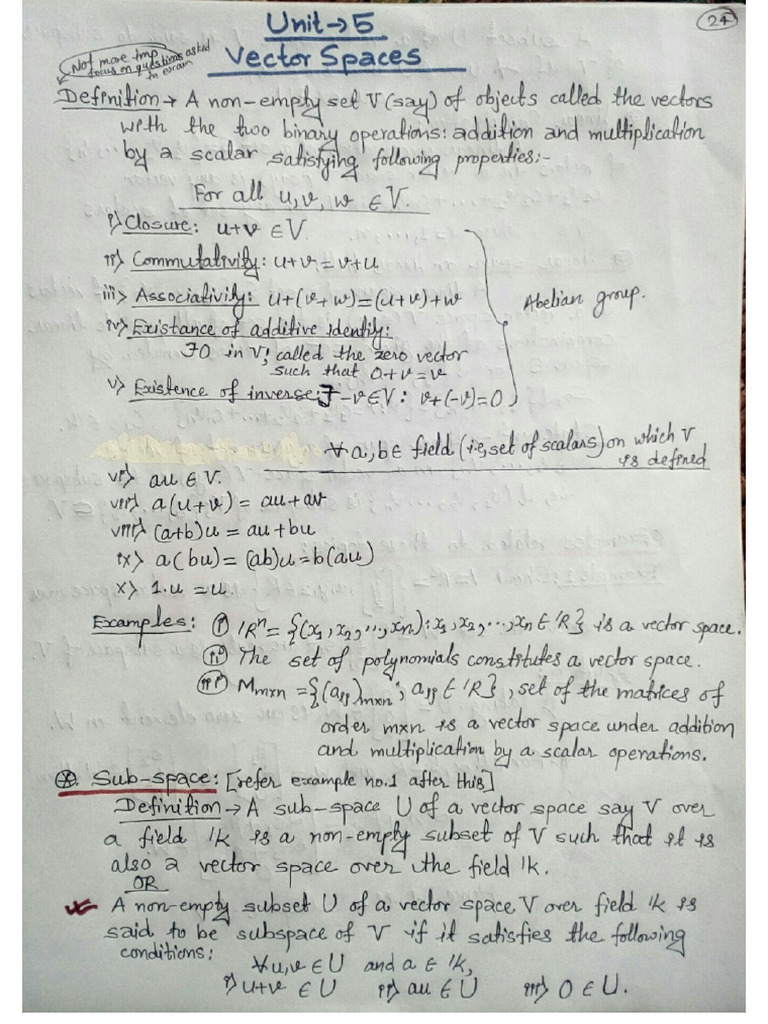 24
Unit→5
Vector Spaces
Not more imp
focus on questions asked
in exam
Definition → A non-empty set V(say) of objects called the vectors
with the two binary operations: addition and multiplication
by a scalar satisfying following properties:-
For all u, v, w ∈ V.
i) Closure: u+v ∈ V.
ii) Commutativity: u+v = v+u
iii) Associativity: u+(v+w)=(u+v)+w
Abelian group.
iv) Existance of additive identity:
∃ 0 in V, called the zero vector
such that 0+v=v
v) Existence of inverse: ∃ -v ∈ V: v+(-v)=0
∀ a, b ∈ field (i.e, set of scalars) on which V
is defined
vi) au ∈ V.
vii) a(u+v) = au+av
viii) (a+b)u = au+bu
ix) a(bu) = (ab)u = b(au)
x) 1.u = u.
Examples: (i) IRⁿ = {(x₁, x₂, .., xₙ): x₁, x₂, ..., xₙ ∈ IR} is a vector space.
(ii) The set of polynomials constitutes a vector space.
(iii) Mmxn = {(aij)mxn; aij ∈ IR}, set of the matrices of
order mxn is a vector space under addition
and multiplication by a scalar operations.
⊛. Sub-space: [refer example no.1 after this]
Definition → A sub-space U of a vector space say V over
a field IK is a non-empty subset of V such that it is
also a vector space over the field IK.
OR
A non-empty subset U of a vector space V over field IK is
said to be subspace of V if it satisfies the following
conditions:
∀ u, v ∈ U and a ∈ IK,
i) u+v ∈ U ii) au ∈ U iii) 0 ∈ U.